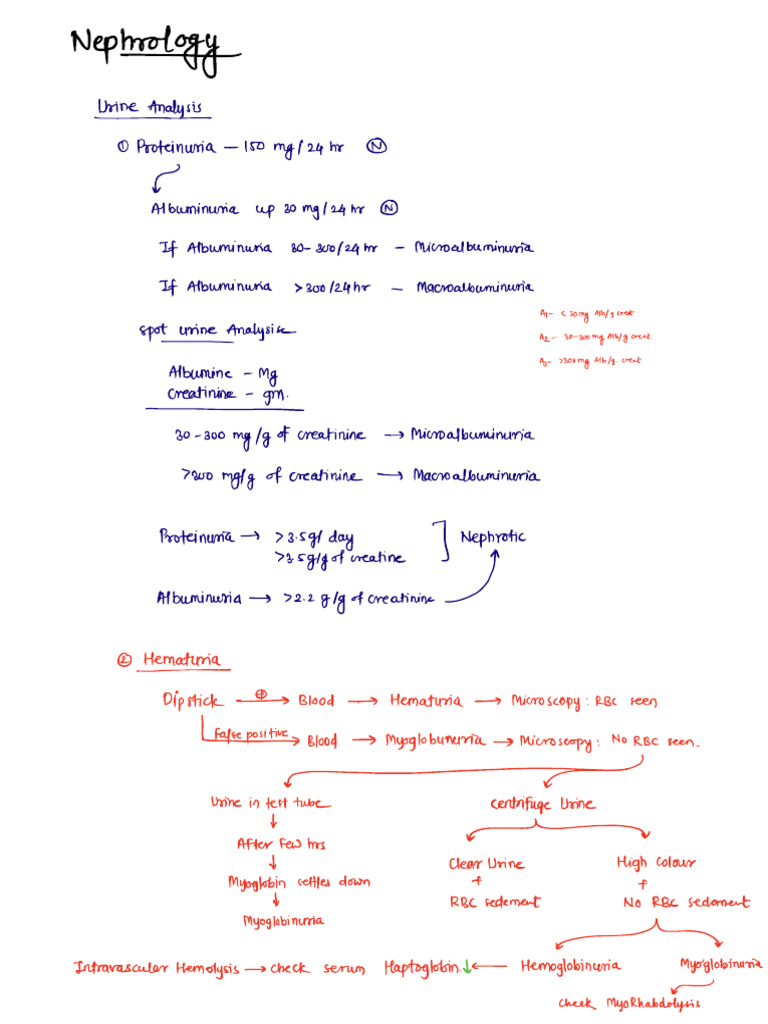 Nephrology
Urine Analysis
① Proteinuria — 150 mg/24 hr Ⓝ
Albuminuria up 30 mg/24 hr Ⓝ
If Albuminuria 30-300/24 hr — Microalbuminuria
If Albuminuria >300/24 hr — Macroalbuminuria
A1- < 30 mg Alb/g creat
A2- 30-300 mg Alb/g creat
A3- >300 mg Alb/g. creat
spot urine Analysis
Albumine — Mg
Creatinine — gm.
30-300 mg/g of creatinine → Microalbuminuria
>300 mg/g of creatinine → Macroalbuminuria
Proteinuria → >3.5g/ day ] Nephrotic
>3.5g/g of creatine
Albuminuria → >2.2 g/g of creatinine
② Hematuria
Dipstick ⊕→ Blood → Hematuria → Microscopy : RBC seen
False positive → Blood → Myoglobunuria → Microscopy : No RBC seen.
Urine in test tube
centrifuge Urine
↓
After Few hrs
↓
Myoglobin settles down
↓
Myoglobinuria
Clear Urine
+
RBC sedement
High Colour
+
No RBC sedement
Intravascular Hemolysis → check serum Haptoglobin ↓ ← Hemoglobinuria
Myoglobinuria
check MyoRhabdolysis